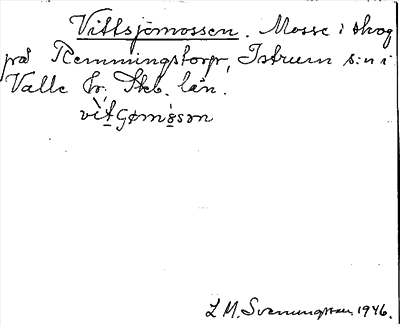 Vittsjömossen. Mosse i skog
på Remmingstorp, Istrum s:n i
Valle hr, Skb. län.
L M. Svenungsson 1946.